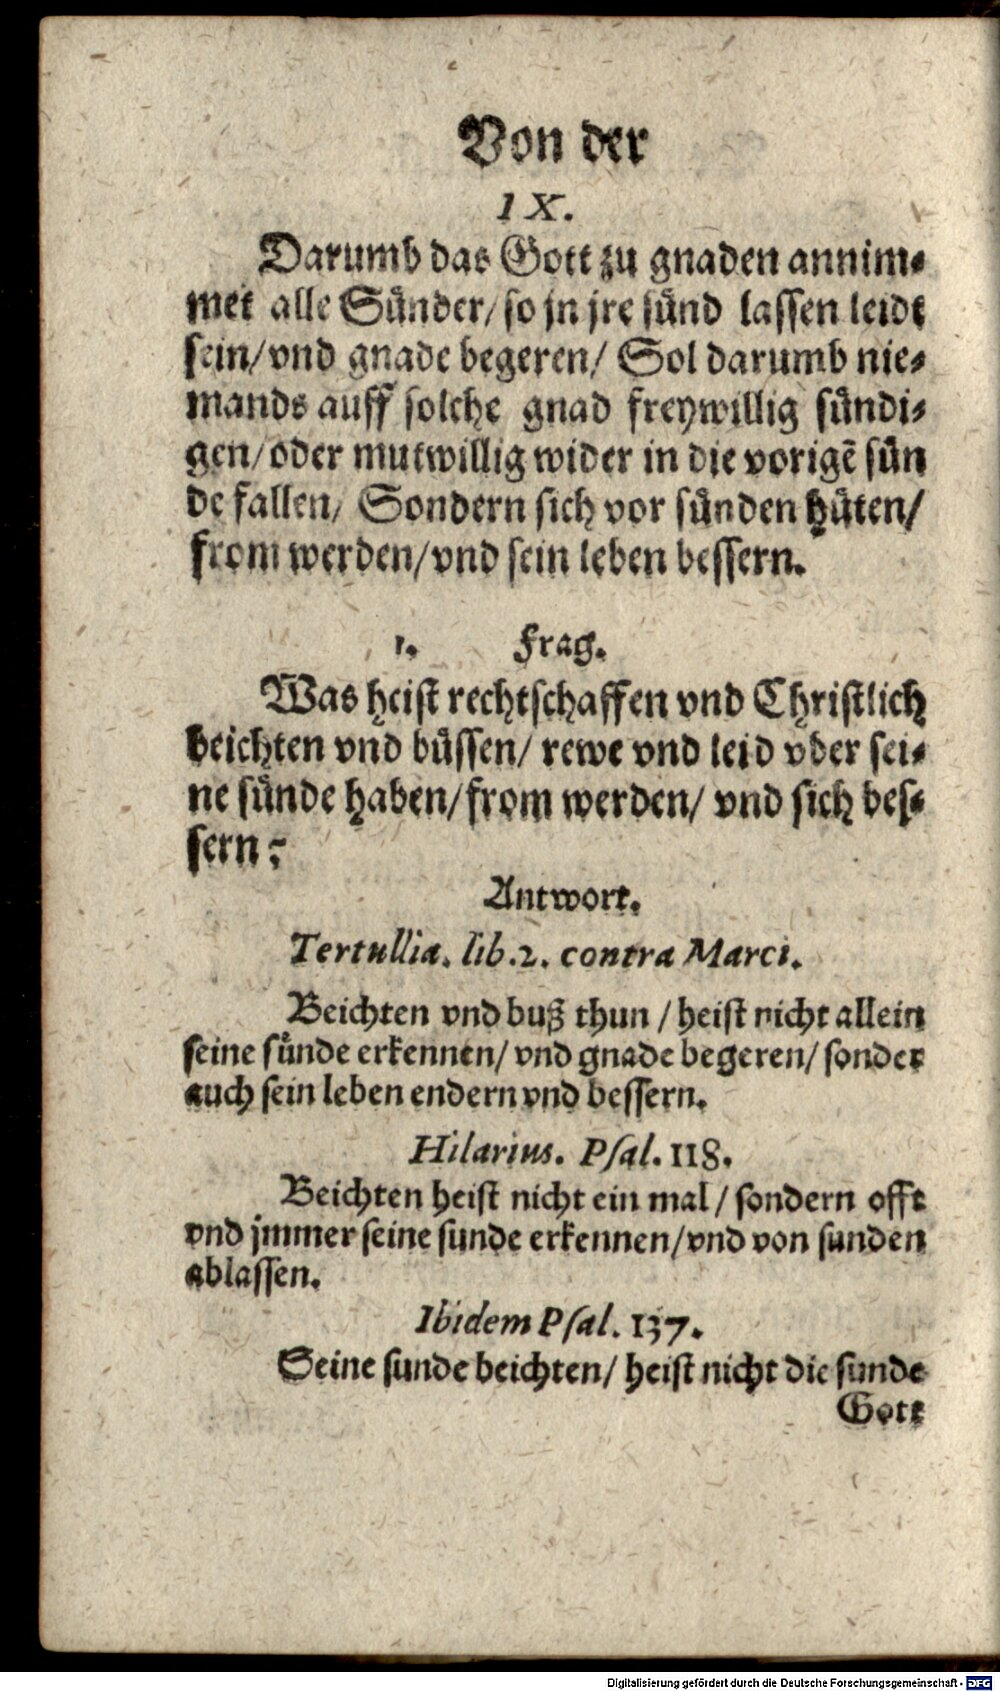 Von der
IX.
Darumb das Gott zu gnaden annim⸗
met alle Sünder/ so jn jre sünd lassen leidt
sein/ vnd gnade begeren/ Sol darumb nie⸗
mands auff solche gnad freywillig sündi⸗
gen/ oder mutwillig wider in die vorigē sün
de fallen/ Sondern sich vor sünden hüten/
from werden/ vnd sein leben bessern.
1. Frag.
Was heist rechtschaffen vnd Christlich
beichten vnd büssen/ rewe vnd leid vber sei⸗
ne sünde haben/ from werden/ vnd sich bes⸗
sern?
Antwort.
Tertullia. lib.2. contra Marci.
Beichten vnd buß thun / heist nicht allein
seine sünde erkennen/ vnd gnade begeren/ sonder
auch sein leben endern vnd bessern.
Hilarius. Psal. 118.
Beichten heist nicht ein mal / sondern offt
vnd jmmer seine sunde erkennen/ vnd von sunden
ablassen.
Ibidem Psal. 137.
Seine sunde beichten/ heist nicht die sunde
Gott
Digitalisierung gefördert durch die Deutsche Forschungsgemeinschaft - DFG